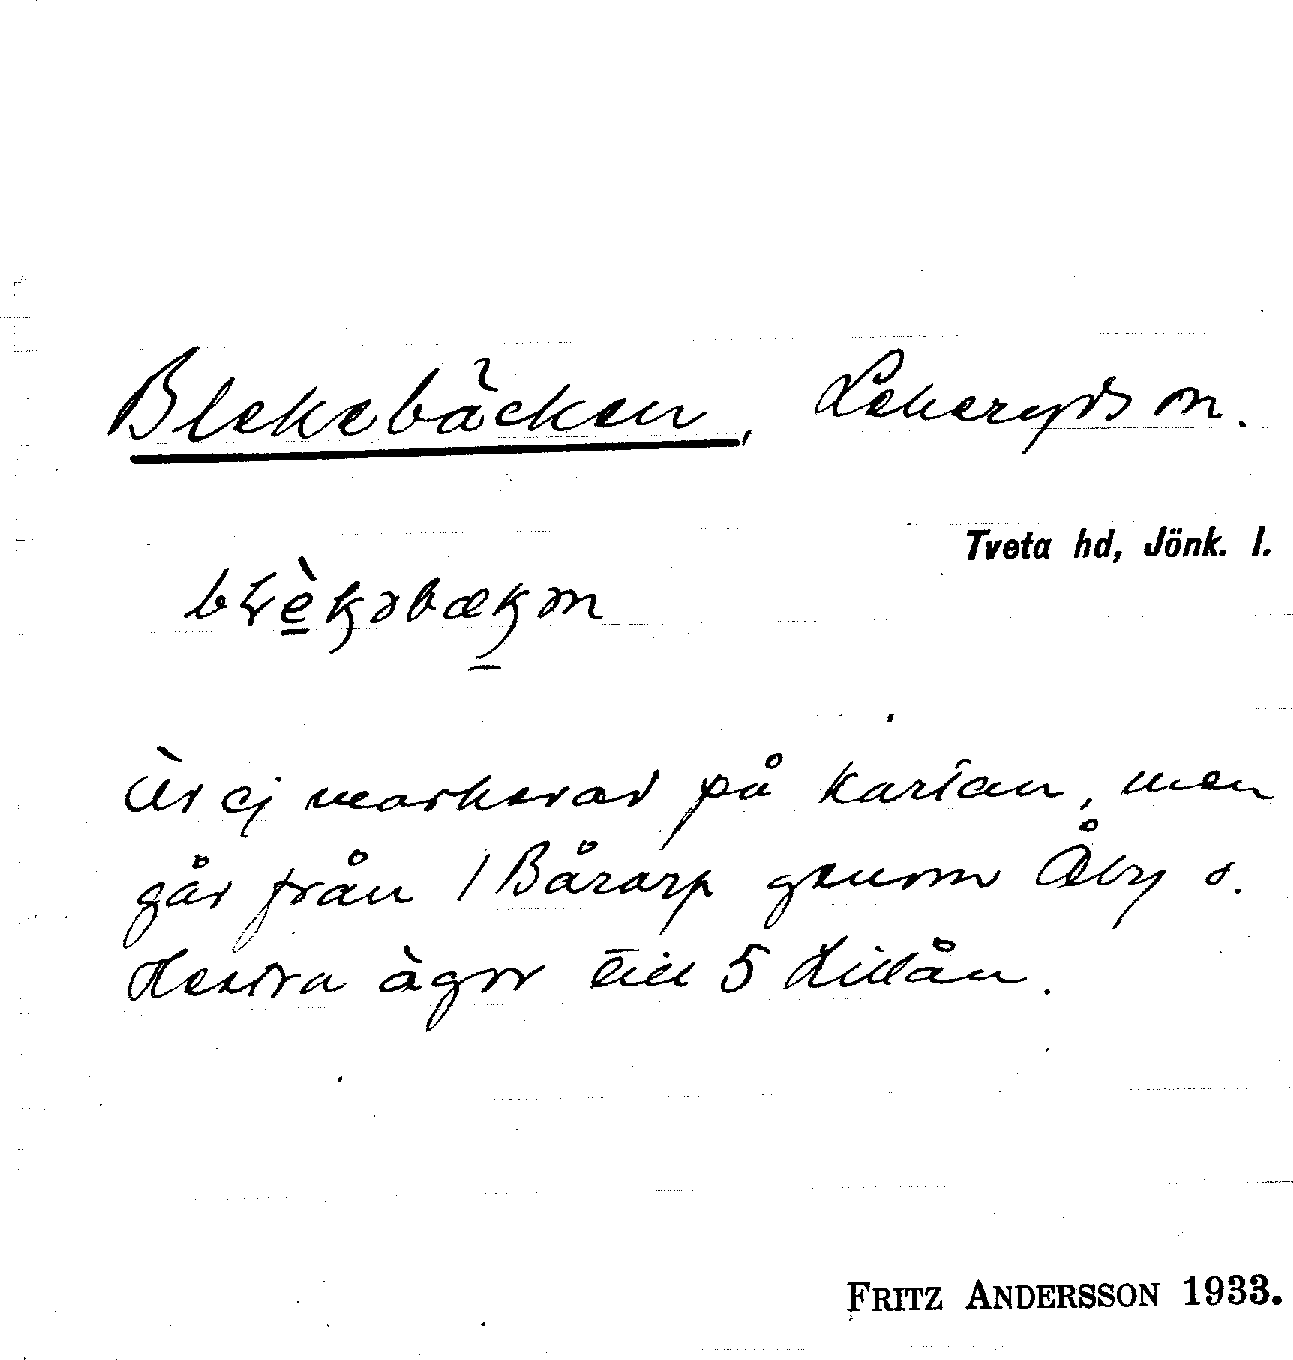 Blekebäcken, Lekeryds sn.
Tveta hd, Jönk. l.
Är ej markerad på kartan, men
går från 1 Bårarp genom Åby o.
Hestra ägor till 5 Lillån.
FRITZ ANDERSSON 1933.